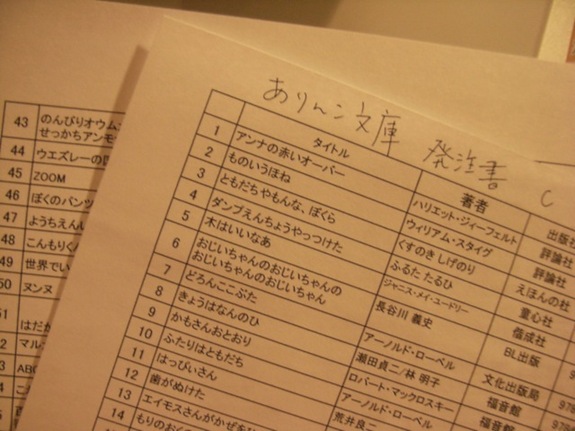 43 のんびりオウム
せっかちアンモ
44 ウエズレーの
45 ZOOM
46 ぼくのパンツ
47 ようちえん
48 こんもりく
49 世界で
50 ヌンヌ
51 はだか
マル
ABC
ありんこ文庫 発注書 C
タイトル 著者 出版社
1 アンナの赤いオーバー ハリエット・ジィーフェルト 評論社
2 ものいうほね ウィリアム・スタイグ 評論社
3 ともだちやもんな、ぼくら くすのき しげのり えほんの社
4 ダンプえんちょうやっつけた ふるた たるひ 童心社
5 木はいいなあ ジャニス・メイ・ユードリー 偕成社
6 おじいちゃんのおじいちゃんの
おじいちゃんのおじいちゃん 長谷川 義史 BL出版
7 どろんここぶた アーノルド・ローベル 文化出版局
8 きょうはなんのひ 瀬田貞二/林 明子 福音館
9 かもさんおとおり ロバート・マックロスキー 福音館
10 ふたりはともだち アーノルド・ローベル
11 はっぴぃさん 荒井良二
12 歯がぬけた
13 エイモスさんがかぜを
14 もりのおく